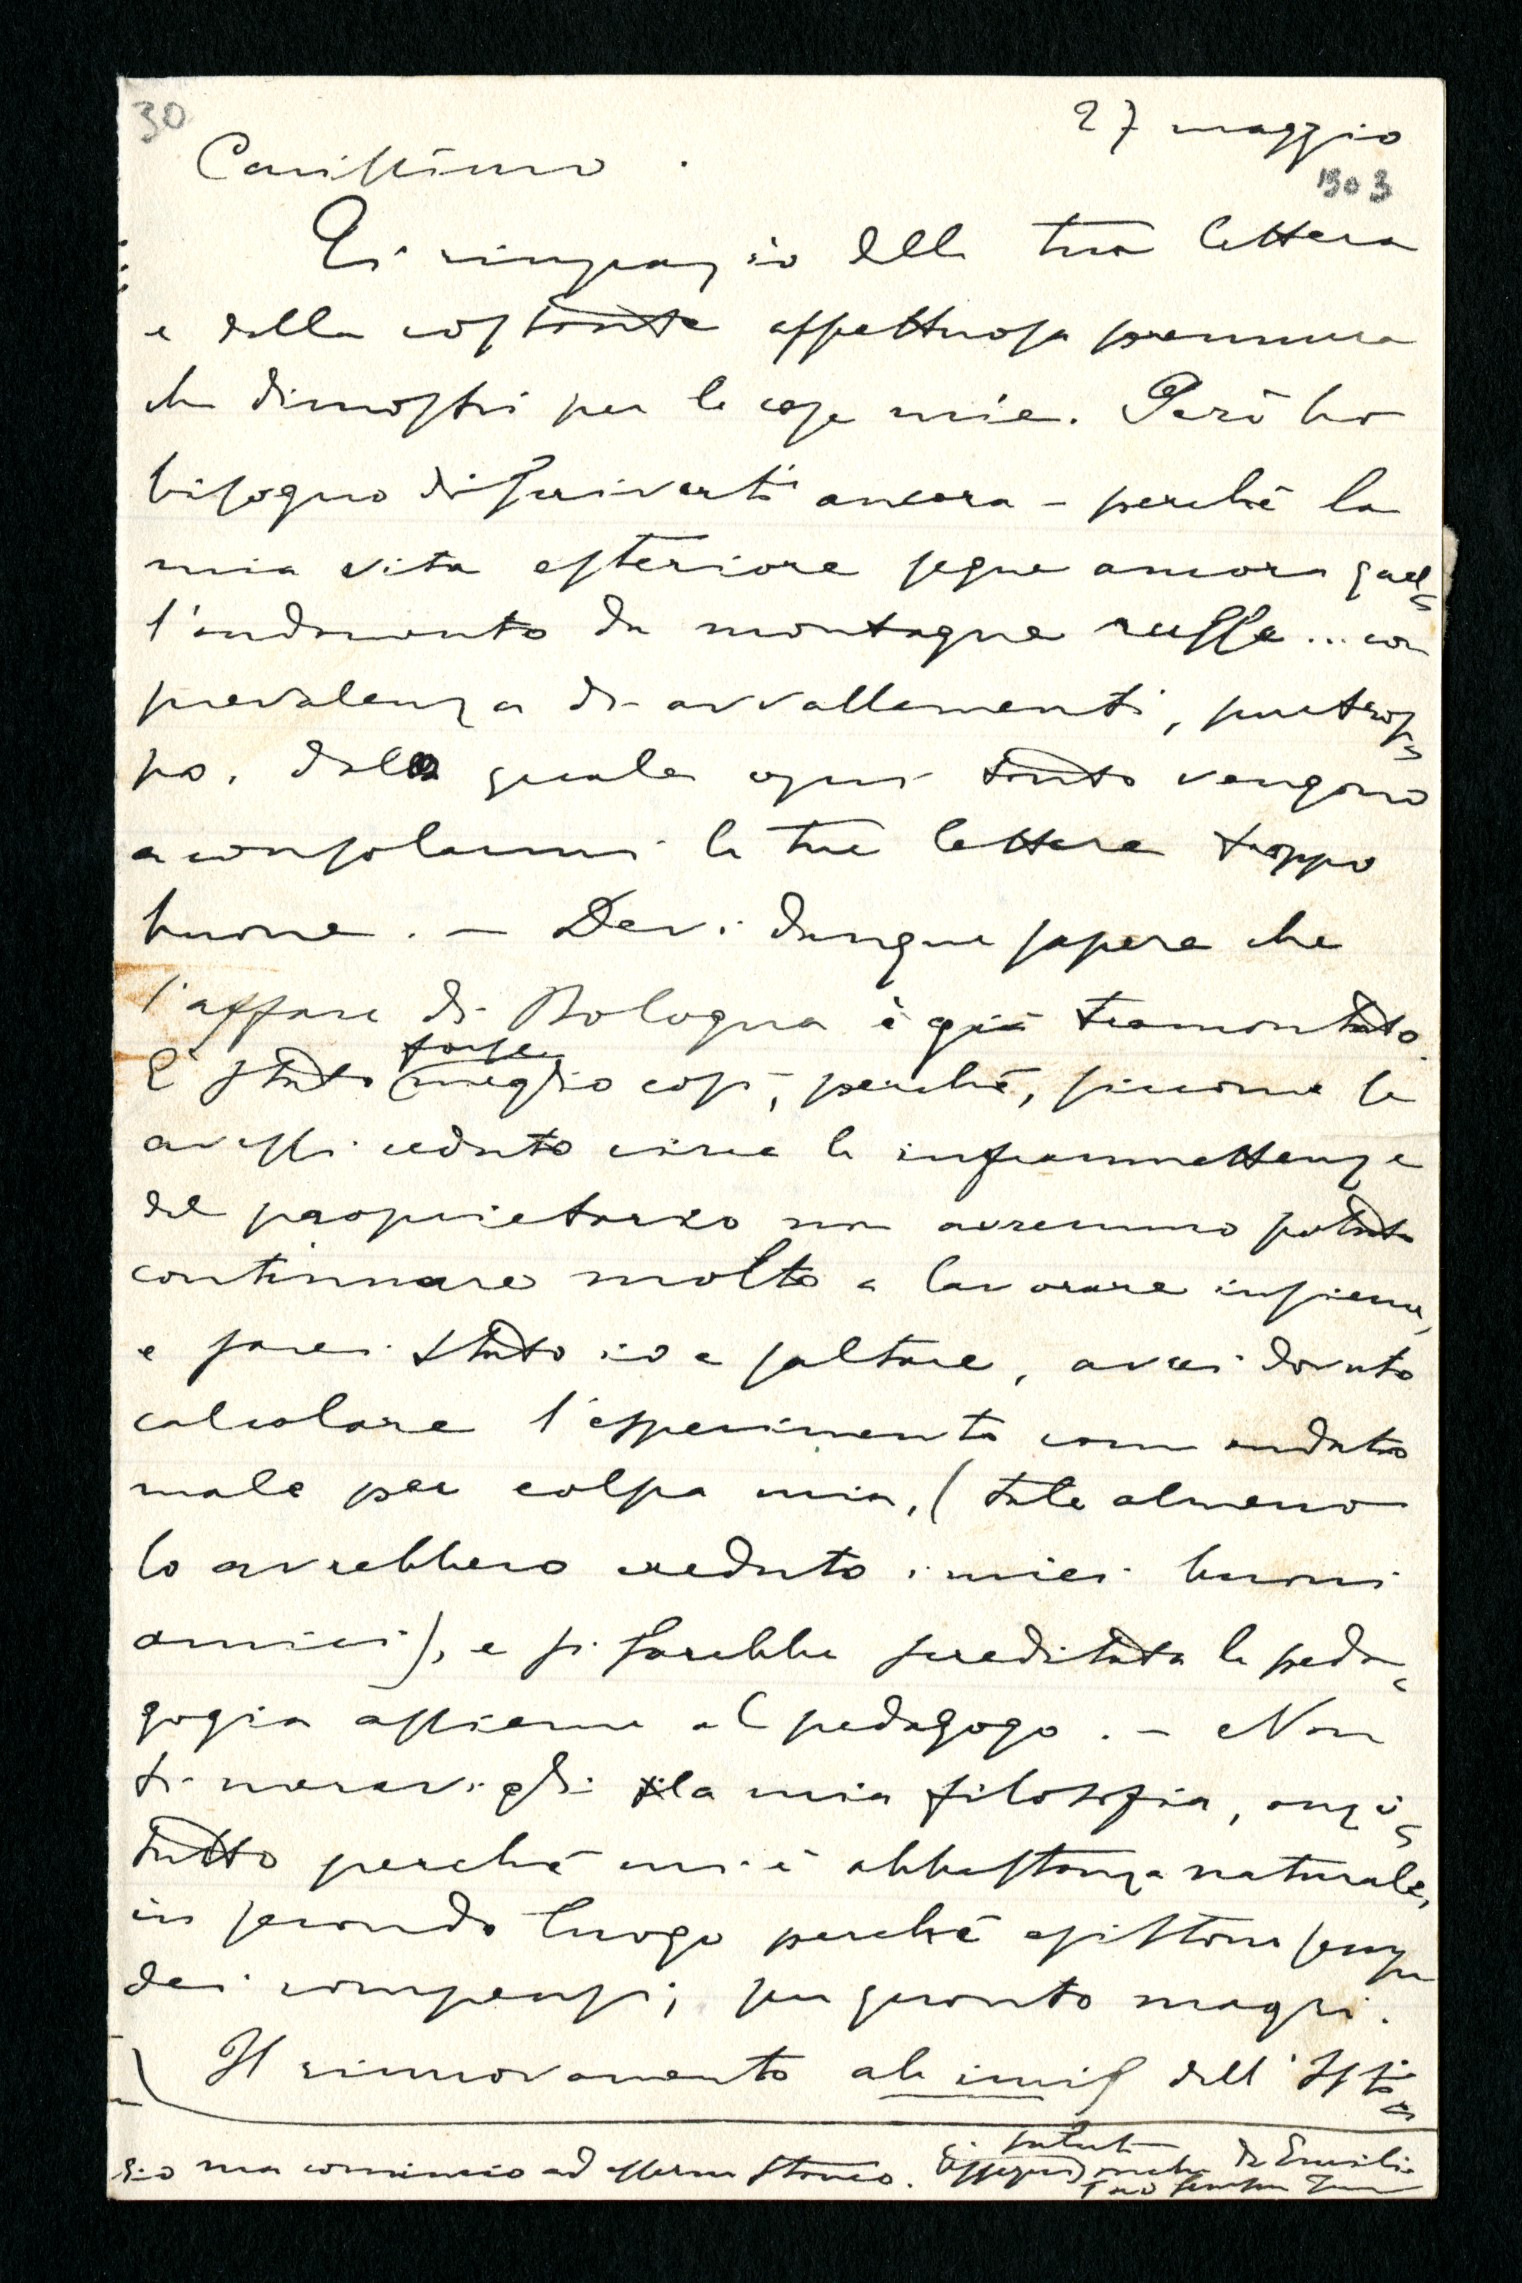 30
27 maggio
1903
Carissimo.
Ti ringrazio della tua lettera
e della costante affettuosa premura
che dimostri per le cose mie. Però ho
bisogno di scriverti ancora – perchè la
mia vita esteriore segue ancora quel-
l'andamento da montagne russe... con
prevalenza di avvallamenti, purtrop-
po, dalle quale ogni tanto vengono
a consolarmi le tue lettere troppo
buone. – Devi dunque sapere che
l'affare di Bologna è già tramontato.
E' stato forse meglio così, perchè, siccome se
avessi ceduto circa le inframmettenze
del proprietario non avremmo potuto
continuare molto a lavorare insieme,
e sarei stato io a saltare, avrei dovuto
calcolare l'esperimento come andato
male per colpa mia, (tale almeno
lo avrebbero creduto i miei buoni
amici), e si sarebbe screditata la peda-
gogia assieme al pedagogo. – Non
ti meravigli la mia filosofia, anzi-
tutto perchè mi è abbastanza naturale,
in secondo luogo perchè esistono sempre
dei compensi, per quanto magri.
Il rinnovamento ab imis dell'
ma comincio ad esserne stanco. saluti
anche da Emilia
tuo sempre